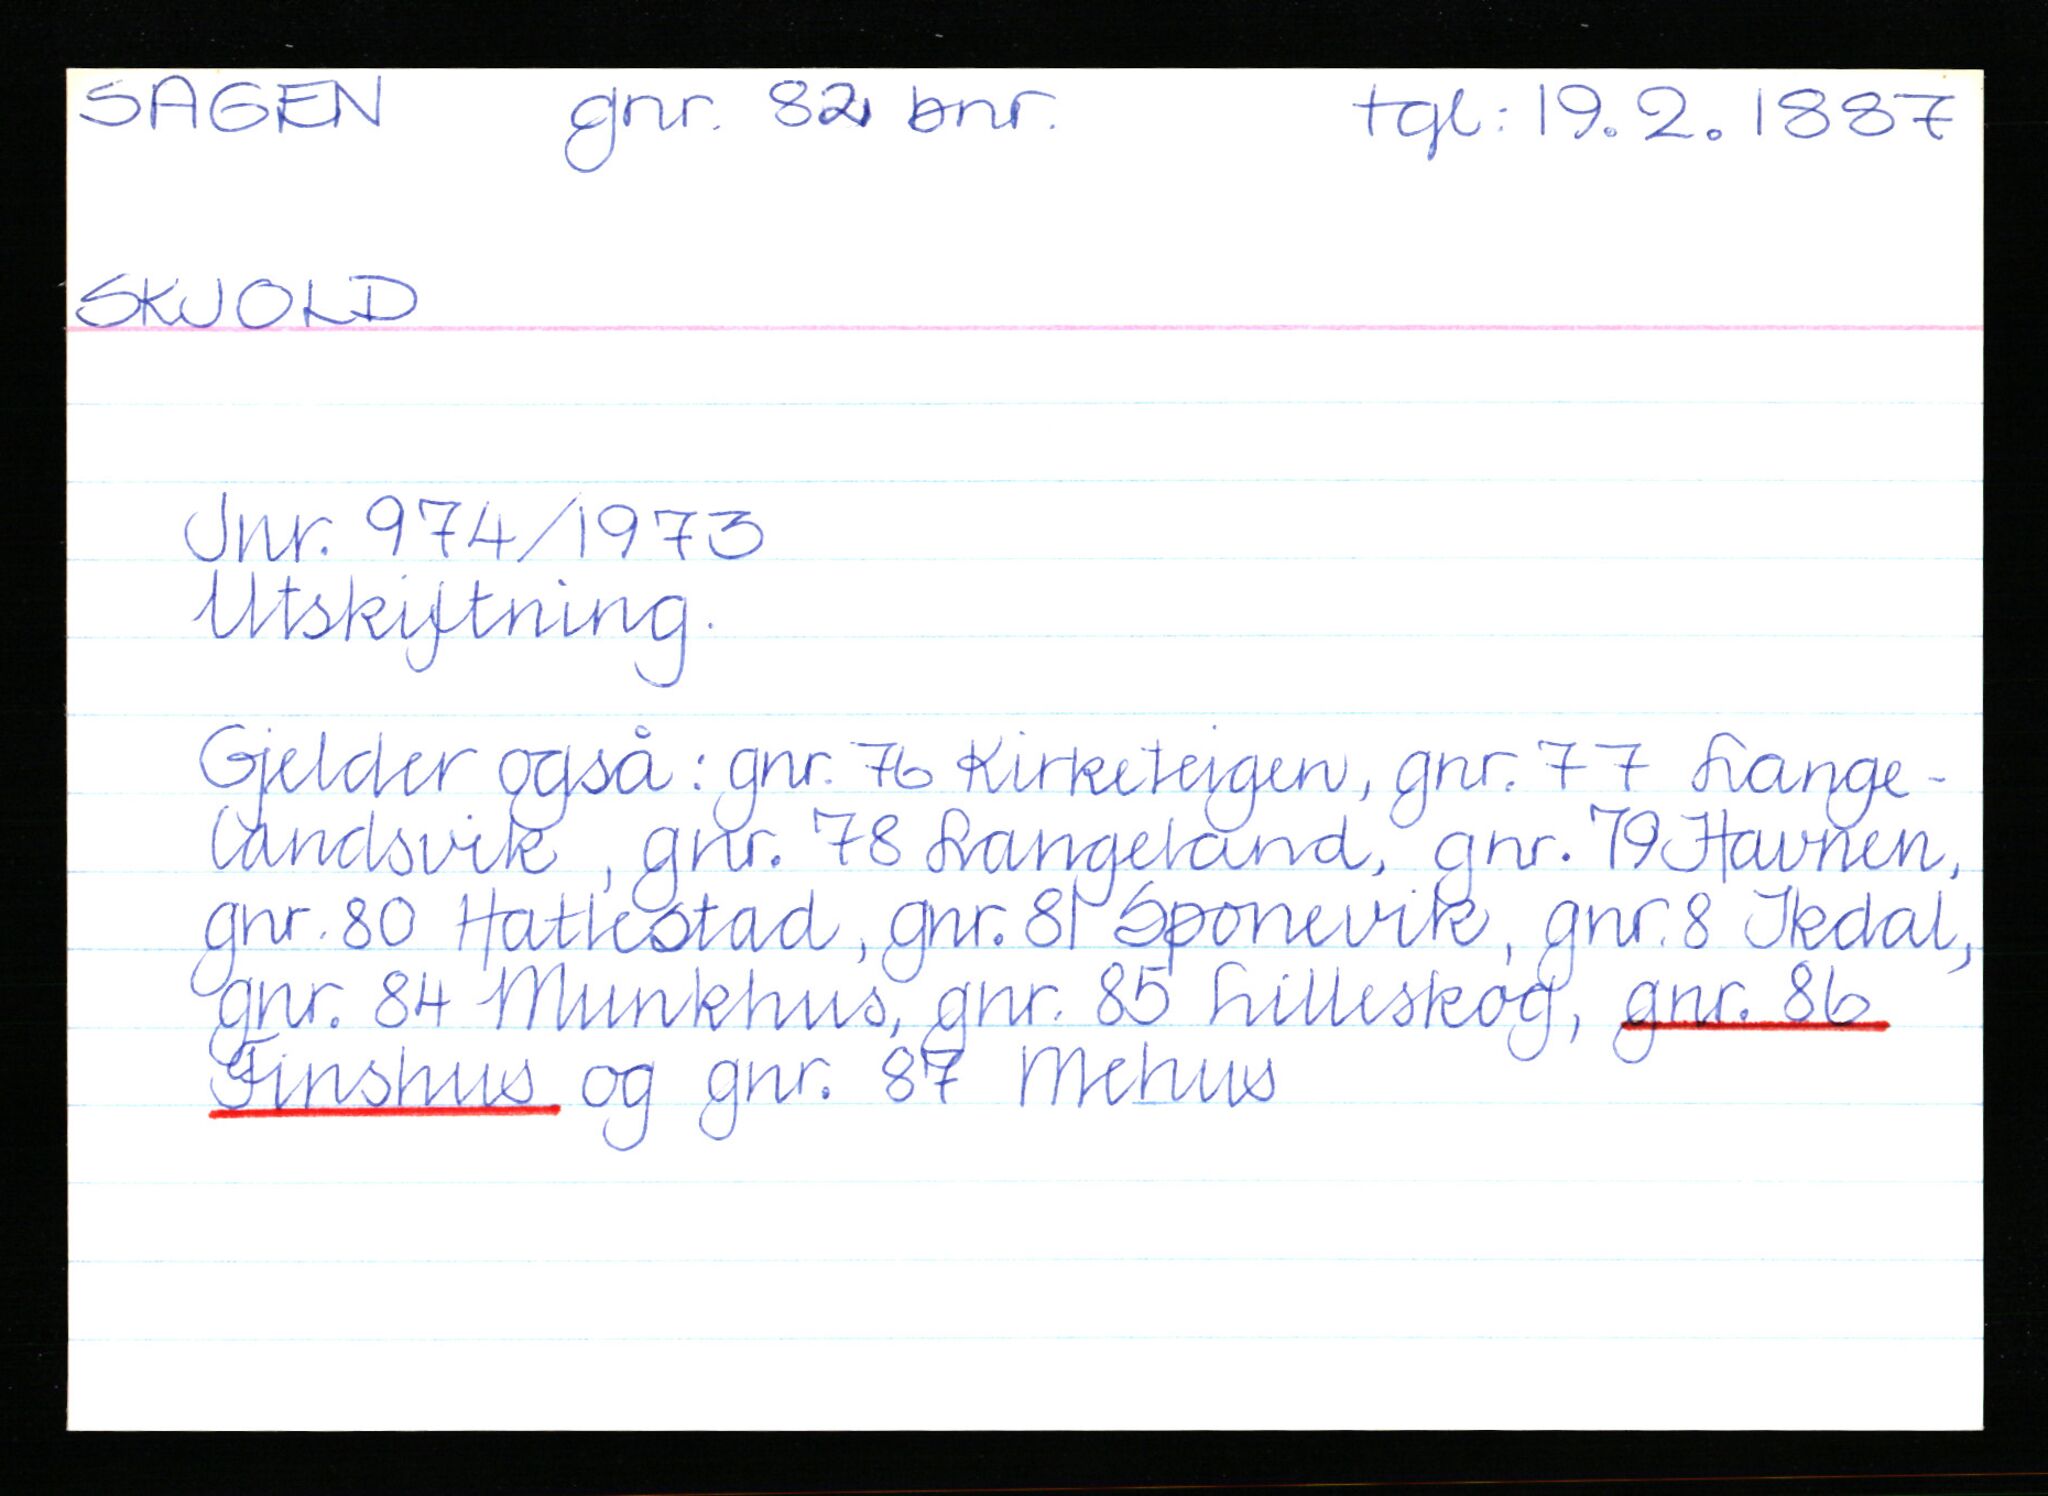 SAGEN gnr. 82 bnr. tgl: 19.2.1887
SKJOLD
Jnr. 974/1973
Utskiftning.
Gjelder også: gnr. 76 Kirketeigen, gnr. 77 Lange-
landsvik, gnr. 78 Langeland, gnr. 79 Havnen,
gnr. 80 Hatlestad, gnr. 81 Sponevik, gnr. 8 Ikdal,
gnr. 84 Munkhus, gnr. 85 Lilleskog, gnr. 86
Finshus og gnr. 87 Mehus